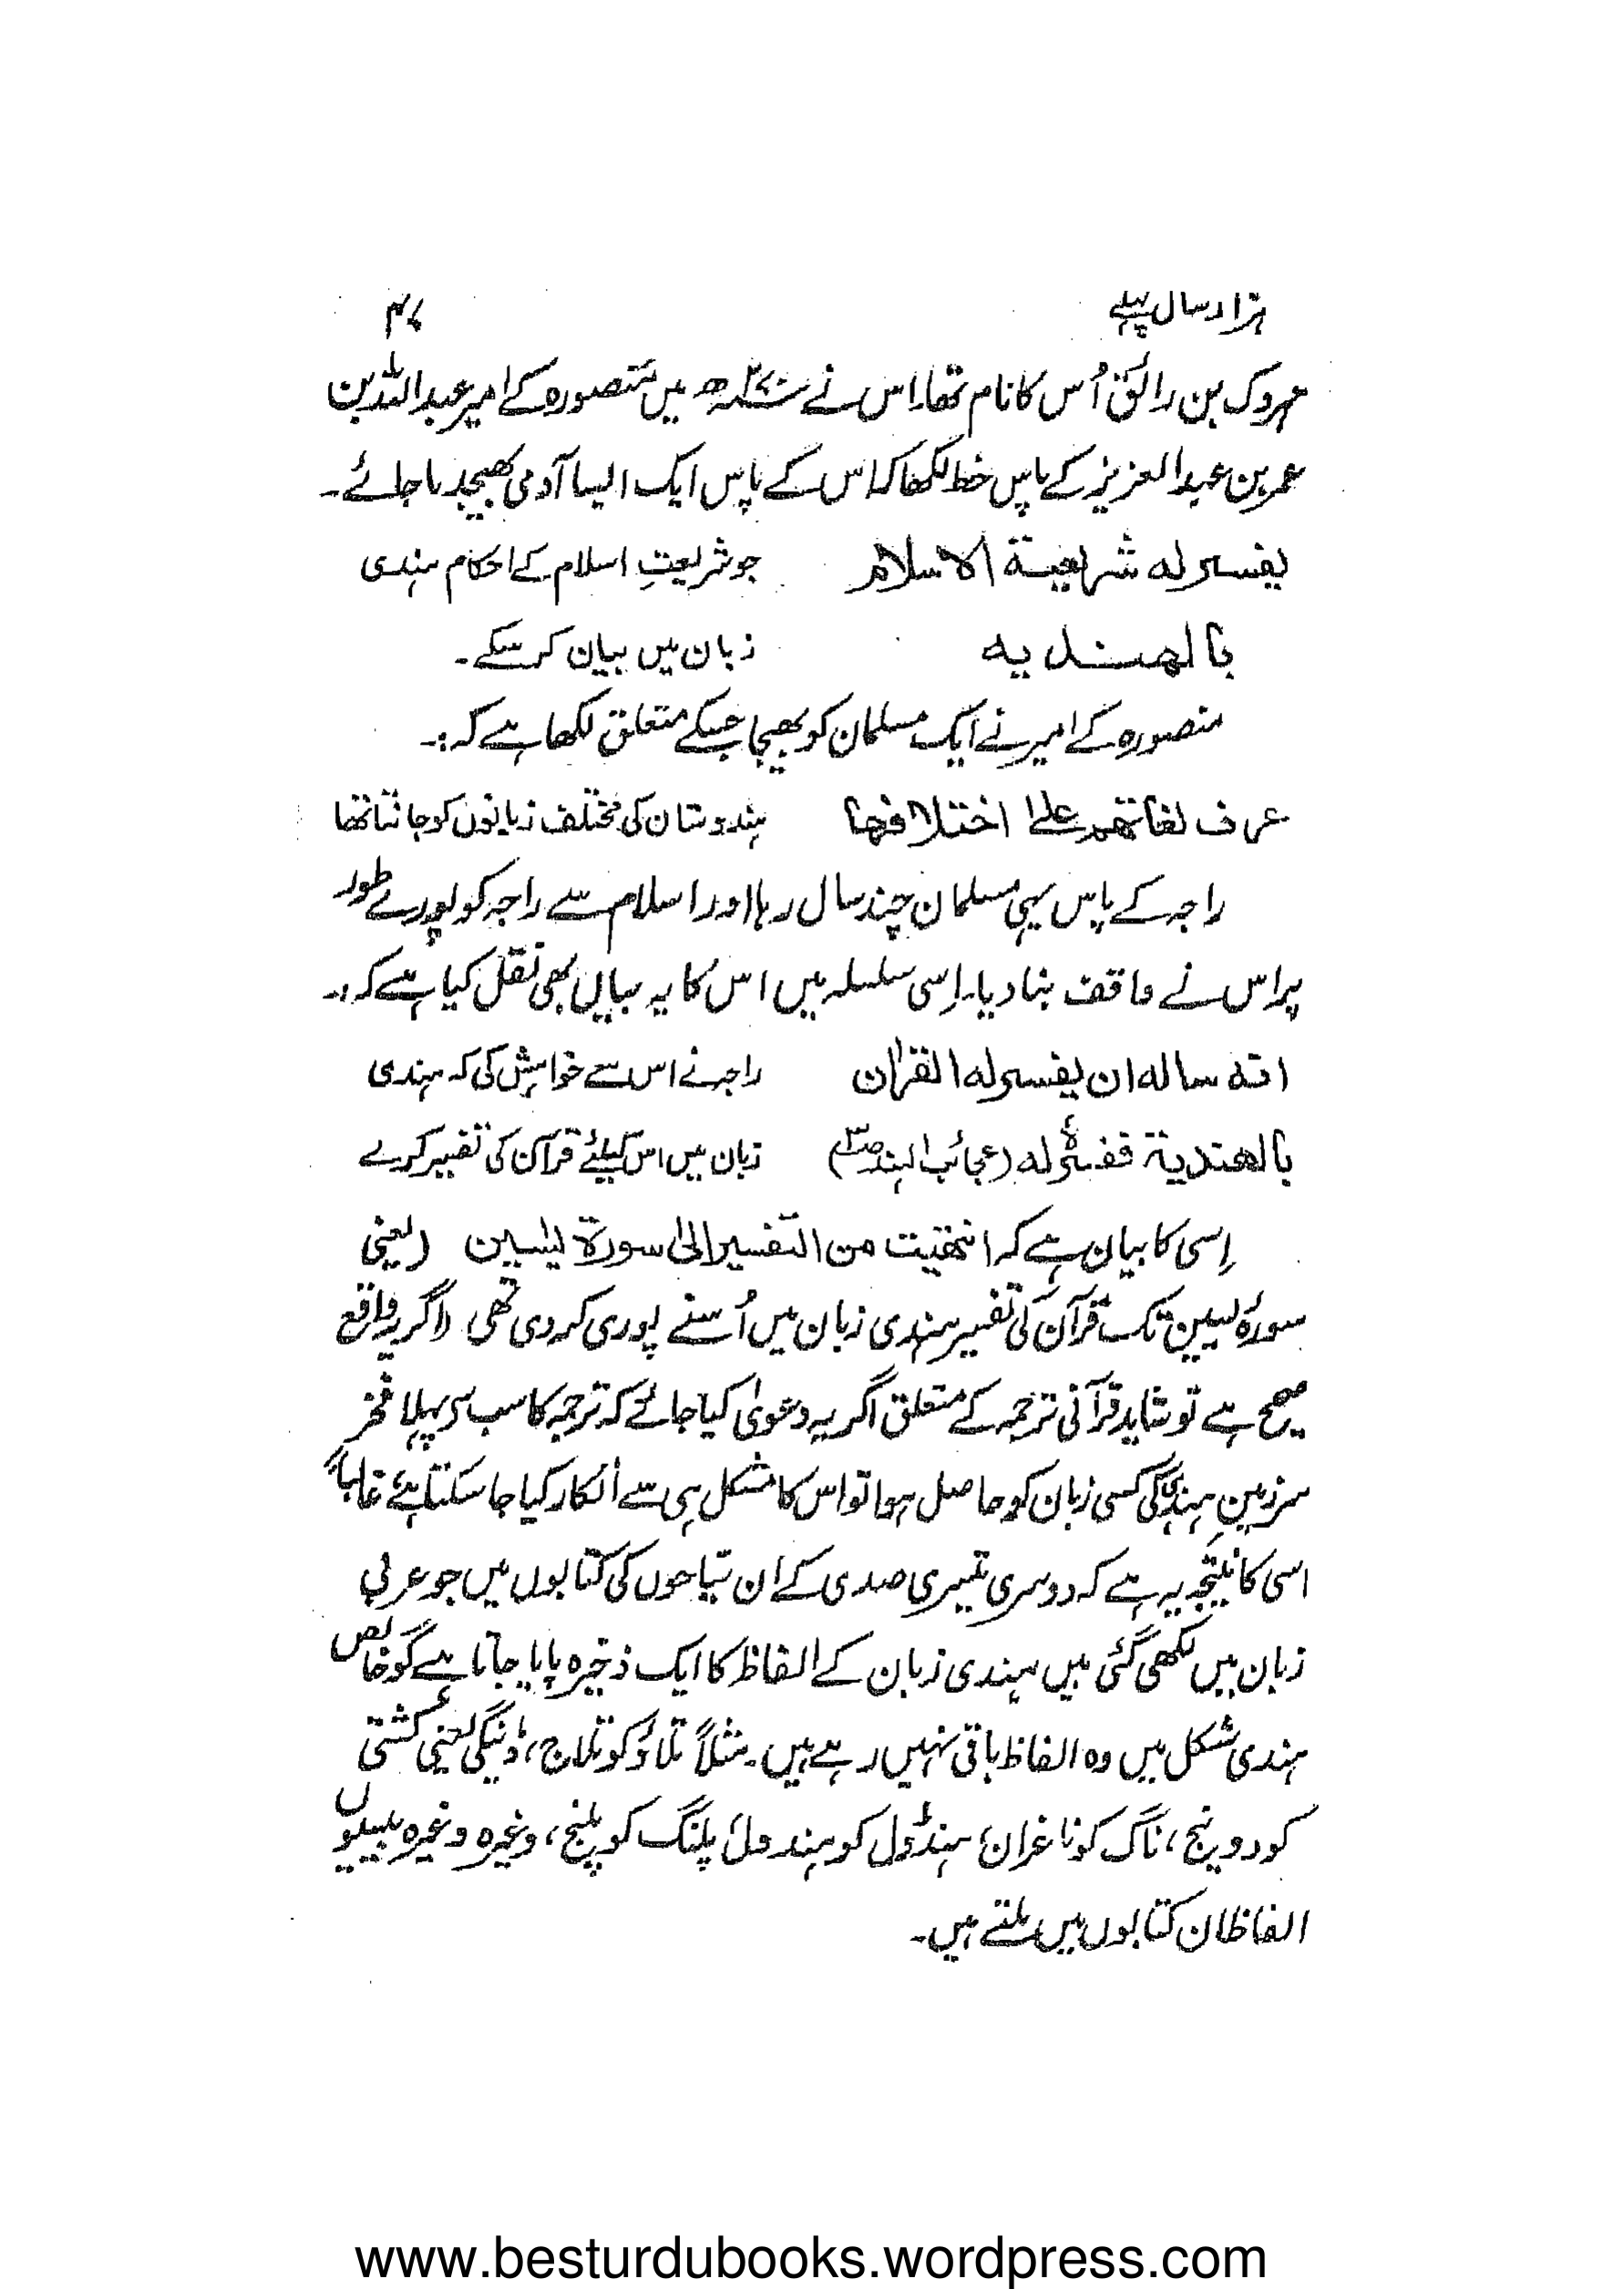 ہزار سال پہلے ۴۷
مہروک بن رائق اُس کا نام تھا۔ اس نے ۲۷۰ھ میں منصورہ کے امیر عبداللہ بن
عمر بن عبدالعزیز کے پاس خط لکھا کہ اس کے پاس ایک ایسا آدمی بھیجدیا جائے۔
یفسر له شریعة الاسلام جو شریعتِ اسلام کے احکام ہندی
بالھندیه زبان میں بیان کر سکے۔
منصورہ کے امیر نے ایک مسلمان کو بھیجا جسکے متعلق لکھا ہے کہ:۔
عرف لغاتھم علیٰ اختلافھا ہندوستان کی مختلف زبانوں کو جانتا تھا
راجہ کے پاس یہی مسلمان چند سال رہا اور اسلام سے راجہ کو پورے طور
پر اس نے واقف بنا دیا۔ اِسی سلسلہ میں اس کا یہ بیان بھی نقل کیا ہے کہ:۔
انه ساله ان یفسر له القرآن راجہ نے اس سے خواہش کی کہ ہندی
بالھندیة ففسرہٗ له (عجائب الہند) زبان میں اس کیلئے قرآن کی تفسیر کرے
اِسی کا بیان ہے کہ انتھیت من التفسیر الیٰ سورة یٰسین (یعنی
سورۂ یٰسین تک قرآن کی تفسیر ہندی زبان میں اُسنے پوری کر دی تھی) اگر یہ واقع
صحیح ہے تو شاید قرآنی ترجمہ کے متعلق اگر یہ دعویٰ کیا جائے کہ ترجمہ کا سب سے پہلا فخر
سرزمینِ ہند ہی کی کسی زبان کو حاصل ہوا تو اس کا مشکل ہی سے انکار کیا جا سکتا ہے، غالباً
اسی کا نتیجہ یہ ہے کہ دوسری تیسری صدی کے ان سیاحوں کی کتابوں میں جو عربی
زبان میں لکھی گئی ہیں ہندی زبان کے الفاظ کا ایک ذخیرہ پایا جاتا ہے گو خالص
ہندی شکل میں وہ الفاظ باقی نہیں رہے ہیں۔ مثلاً تلاؤ کو تلاج، ڈنگی یعنی کشتی
کو دونیج، ناگ کو ناغران، ہنڈول کو ہندول، پلنگ کو پلنج، وغیرہ وغیرہ بیسیوں
الفاظ ان کتابوں میں ملتے ہیں۔
www.besturdubooks.wordpress.com